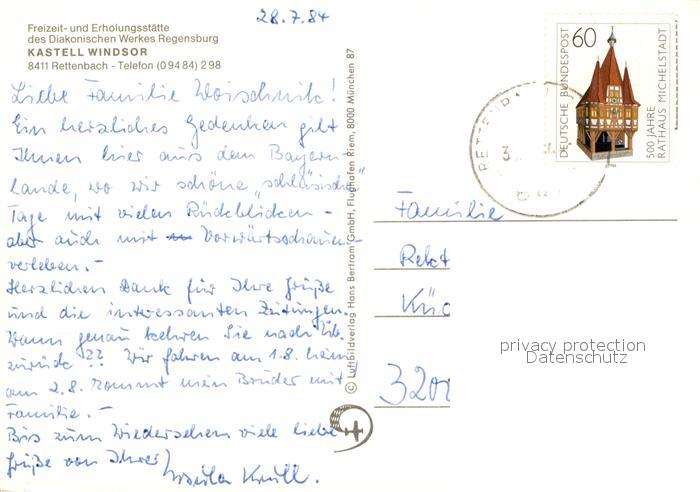 28.7.84
Freizeit- und Erholungsstätte
des Diakonischen Werkes Regensburg
KASTELL WINDSOR
8411 Rettenbach - Telefon (0 94 84) 2 98
Liebe Familie Woischnik!
Ein herzliches Gedenken gilt
Ihnen hier aus dem Bayern-
lande, wo wir schöne „schlesische"
Tage mit vielen Rückblicken -
aber auch mit Vorwärtsschauen -
verleben. -
Herzlichen Dank für Ihre Grüße
und die interessanten Zeitungen.
Wann genau kehren Sie nach
zurück ?? Wir fahren am 1.8. heim
am 2.8. kommt mein Bruder mit
Familie. -
Bis zum Wiedersehen viele liebe
Grüße von Ihrer
Ursula Krull.
© Luftbildverlag Hans Bertram GmbH, Flughafen Riem, 8000 München 87
DEUTSCHE BUNDESPOST
60
500 JAHRE
RATHAUS MICHELSTADT
Familie
Rekt
320
privacy protection
Datenschutz